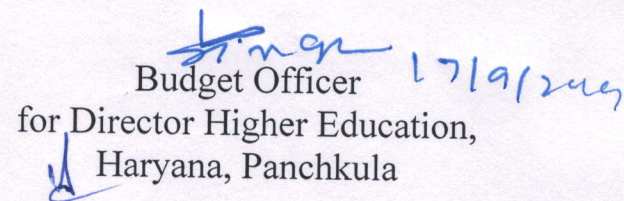 Budget Officer
for Director Higher Education,
Haryana, Panchkula